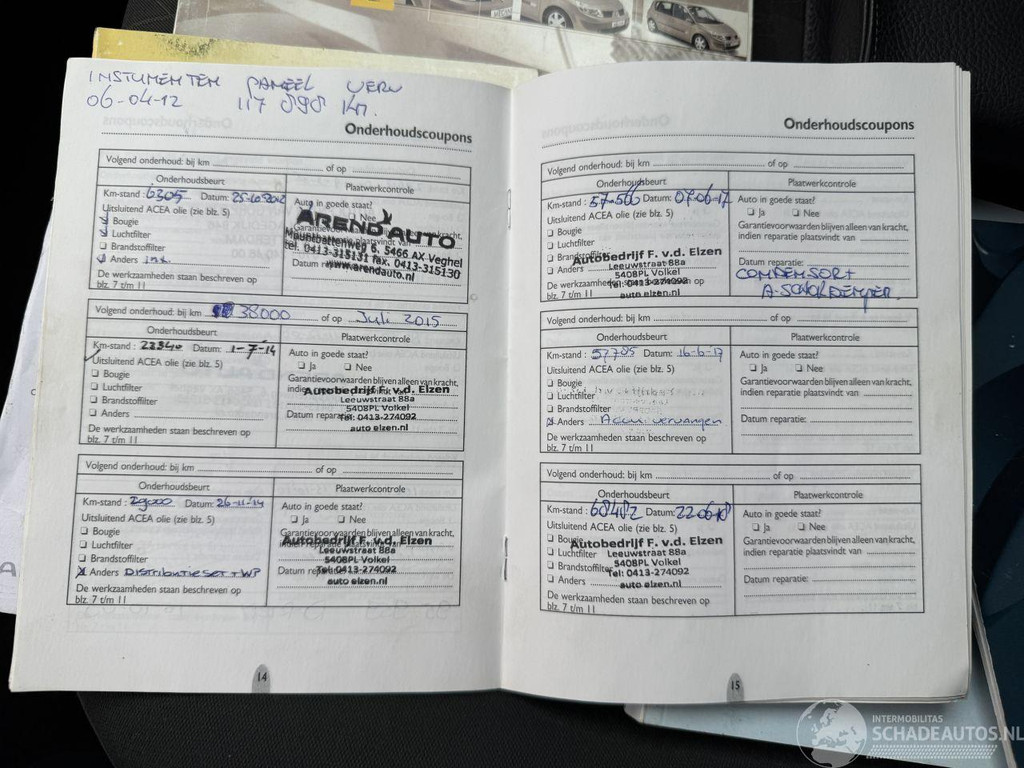 INSTUMENTEN PANEEL VERV
06-04-12 117 898 KM.
Onderhoudscoupons
Volgend onderhoud: bij km of op
Onderhoudsbeurt Plaatwerkcontrole
Km-stand : 6305 Datum: 25-10-2012 Auto in goede staat?
Uitsluitend ACEA olie (zie blz. 5) Ja Nee
Bougie Garantievoorwaarden
Luchtfilter plaatsvindt van
Brandstoffilter
Anders Datum
De werkzaamheden staan beschreven op
blz. 7 t/m 11
AREND AUTO
Mountbattenweg 6, 5466 AX Veghel
tel. 0413-315131 fax. 0413-315130
www.arendauto.nl
Volgend onderhoud: bij km 38000 of op Juli 2015
Onderhoudsbeurt Plaatwerkcontrole
Km-stand : 22340 Datum: 1-7-14 Auto in goede staat?
Uitsluitend ACEA olie (zie blz. 5) Ja Nee
Bougie Garantievoorwaarden blijven alleen van kracht,
Luchtfilter indien
Brandstoffilter
Anders Datum reparatie:
De werkzaamheden staan beschreven op
blz. 7 t/m 11
Autobedrijf F. v.d. Elzen
Leeuwstraat 88a
5408PL Volkel
Tel: 0413-274092
auto elzen.nl
Volgend onderhoud: bij km of op
Onderhoudsbeurt Plaatwerkcontrole
Km-stand : 29000 Datum: 26-11-14 Auto in goede staat?
Uitsluitend ACEA olie (zie blz. 5) Ja Nee
Bougie Garantievoorwaarden blijven alleen van kracht,
Luchtfilter indien reparatie plaatsvindt van
Brandstoffilter
Anders DISTRIBUTIESET + WP Datum
De werkzaamheden staan beschreven op
blz. 7 t/m 11
Autobedrijf F. v.d. Elzen
Leeuwstraat 88a
5408PL Volkel
Tel: 0413-274092
auto elzen.nl
14
Onderhoudscoupons
Volgend onderhoud: bij km of op
Onderhoudsbeurt Plaatwerkcontrole
Km-stand : 57-566 Datum: 07-06-17 Auto in goede staat?
Uitsluitend ACEA olie (zie blz. 5) Ja Nee
Bougie Garantievoorwaarden blijven alleen van kracht,
Luchtfilter indien reparatie plaatsvindt van
Brandstoffilter
Anders Datum reparatie:
De werkzaamheden staan beschreven op
blz. 7 t/m 11
CONDENSOR+
A-SCHOKDEMPER
Autobedrijf F. v.d. Elzen
Leeuwstraat 88a
5408PL Volkel
Tel: 0413-274092
auto elzen.nl
Volgend onderhoud: bij km of op
Onderhoudsbeurt Plaatwerkcontrole
Km-stand : 57785 Datum: 16-6-17 Auto in goede staat?
Uitsluitend ACEA olie (zie blz. 5) Ja Nee
Bougie Garantievoorwaarden blijven alleen van kracht,
Luchtfilter indien reparatie plaatsvindt van
Brandstoffilter
Anders Accu vervangen Datum reparatie:
De werkzaamheden staan beschreven op
blz. 7 t/m 11
Volgend onderhoud: bij km of op
Onderhoudsbeurt Plaatwerkcontrole
Km-stand : 68482 Datum: 22-06-18 Auto in goede staat?
Uitsluitend ACEA olie (zie blz. 5) Ja Nee
Bougie Garantievoorwaarden blijven alleen van kracht,
Luchtfilter indien reparatie plaatsvindt van
Brandstoffilter
Anders Datum reparatie:
De werkzaamheden staan beschreven op
blz. 7 t/m 11
Autobedrijf F. v.d. Elzen
Leeuwstraat 88a
5408PL Volkel
Tel: 0413-274092
auto elzen.nl
15
INTERMOBILITAS
SCHADEAUTOS.NL